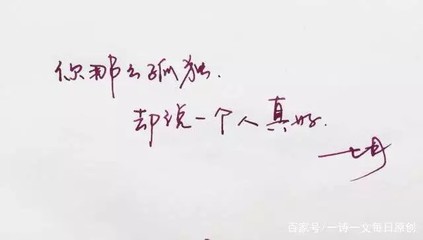 你那么孤独.
却说一个人真好.
百家号/一诗一文每日原创